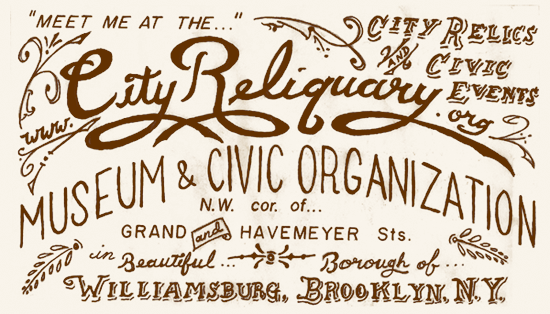 "MEET ME AT THE..."
CITY RELICS
AND
CIVIC
EVENTS
www.
City Reliquary
.org
MUSEUM & CIVIC ORGANIZATION
N.W. cor. of...
GRAND and HAVEMEYER Sts.
in Beautiful... Borough of...
WILLIAMSBURG, BROOKLYN, N.Y.